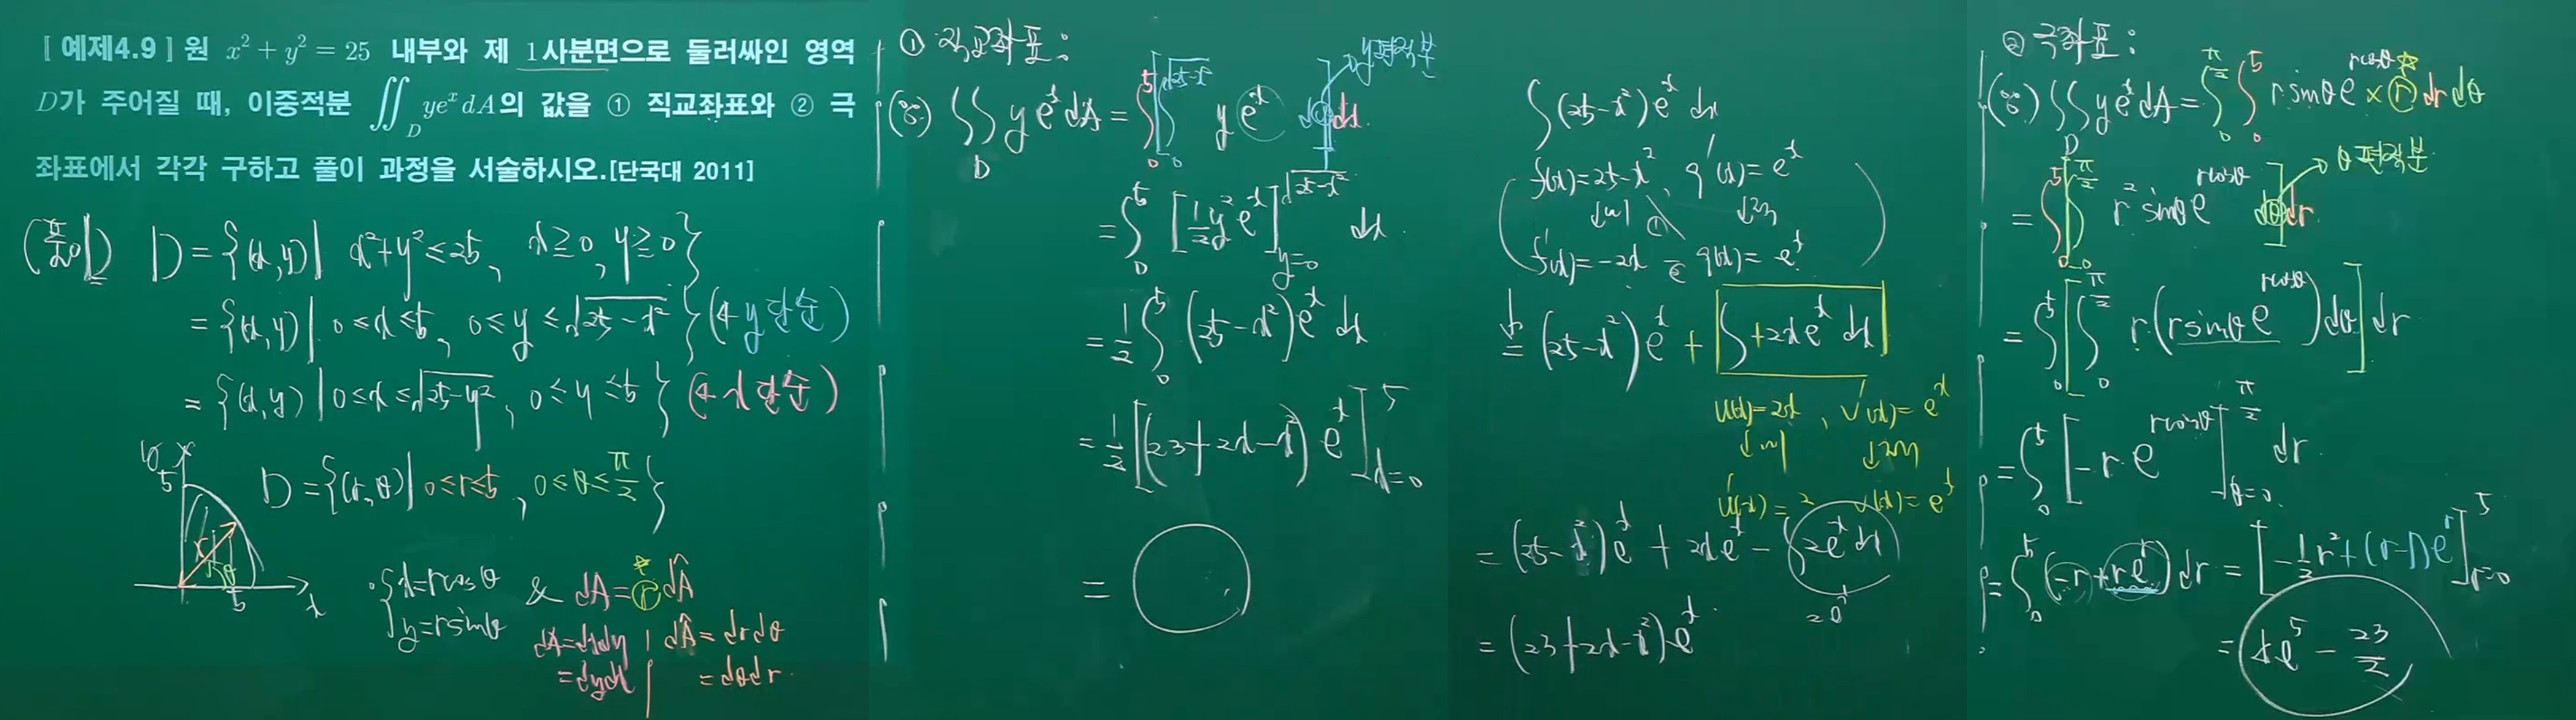 [ 예제4.9 ] 원 x² + y² = 25 내부와 제 1사분면으로 둘러싸인 영역
D가 주어질 때, 이중적분 ∬_D ye^x dA의 값을 ① 직교좌표와 ② 극
좌표에서 각각 구하고 풀이 과정을 서술하시오.[단국대 2011]
(풀이) D = {(x,y) | x²+y² ≤ 25, x ≥ 0, y ≥ 0}
= {(x,y) | 0 ≤ x ≤ 5, 0 ≤ y ≤ √(25-x²)} (← y단순)
= {(x,y) | 0 ≤ x ≤ √(25-y²), 0 ≤ y ≤ 5} (← x단순)
y
5
D = {(r,θ) | 0 ≤ r ≤ 5, 0 ≤ θ ≤ π/2}
r
θ
5
x
{x = r cosθ
y = r sinθ
& dA = r dÂ
dA = dxdy | dÂ = drdθ
= dydx | = dθdr
① 직교좌표 :
(중) ∬_D ye^x dA = ∫_0^5 [∫_0^√(25-x²) y e^x dy] dx
y편적분
= ∫_0^5 [1/2 y² e^x]_{y=0}^{√(25-x²)} dx
= 1/2 ∫_0^5 (25-x²)e^x dx
= 1/2 [(23+2x-x²) e^x]_{x=0}^5
=
∫(25-x²)e^x dx
f(x) = 25-x², g'(x) = e^x
↓미 ↓적
f'(x) = -2x g(x) = e^x
= (25-x²)e^x + ∫+2xe^x dx
u(x) = 2x, v'(x) = e^x
↓미 ↓적
u'(x) = 2 v(x) = e^x
= (25-x²)e^x + 2xe^x - ∫2e^x dx
= (23+2x-x²)e^x
② 극좌표 :
(중) ∬_D ye^x dA = ∫_0^{π/2} ∫_0^5 r sinθ e^{r cosθ} × r dr dθ
= ∫_0^5 [∫_0^{π/2} r² sinθ e^{r cosθ} dθ] dr
θ편적분
= ∫_0^5 [∫_0^{π/2} r(r sinθ e^{r cosθ}) dθ] dr
= ∫_0^5 [-r e^{r cosθ}]_{θ=0}^{π/2} dr
= ∫_0^5 (-r + re^r) dr = [-1/2 r² + (r-1)e^r]_{r=0}^5
= 4e^5 - 23/2